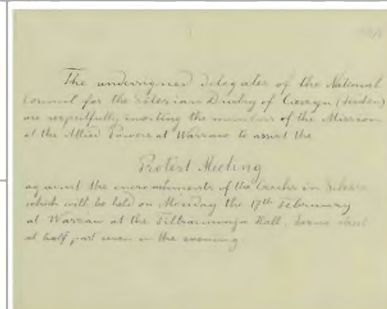 The undersigned Delegates of the National
Council for the Silesian Duchy of Cieszyn (Teschen)
are respectfully inviting the members of the Mission
of the Allied Powers at Warsaw to assist the
Protest Meeting
against the encroachments of the Czechs in Silesia
which will be held on Monday the 17th February
at Warsaw at the Hall,
at half past seven in the evening.